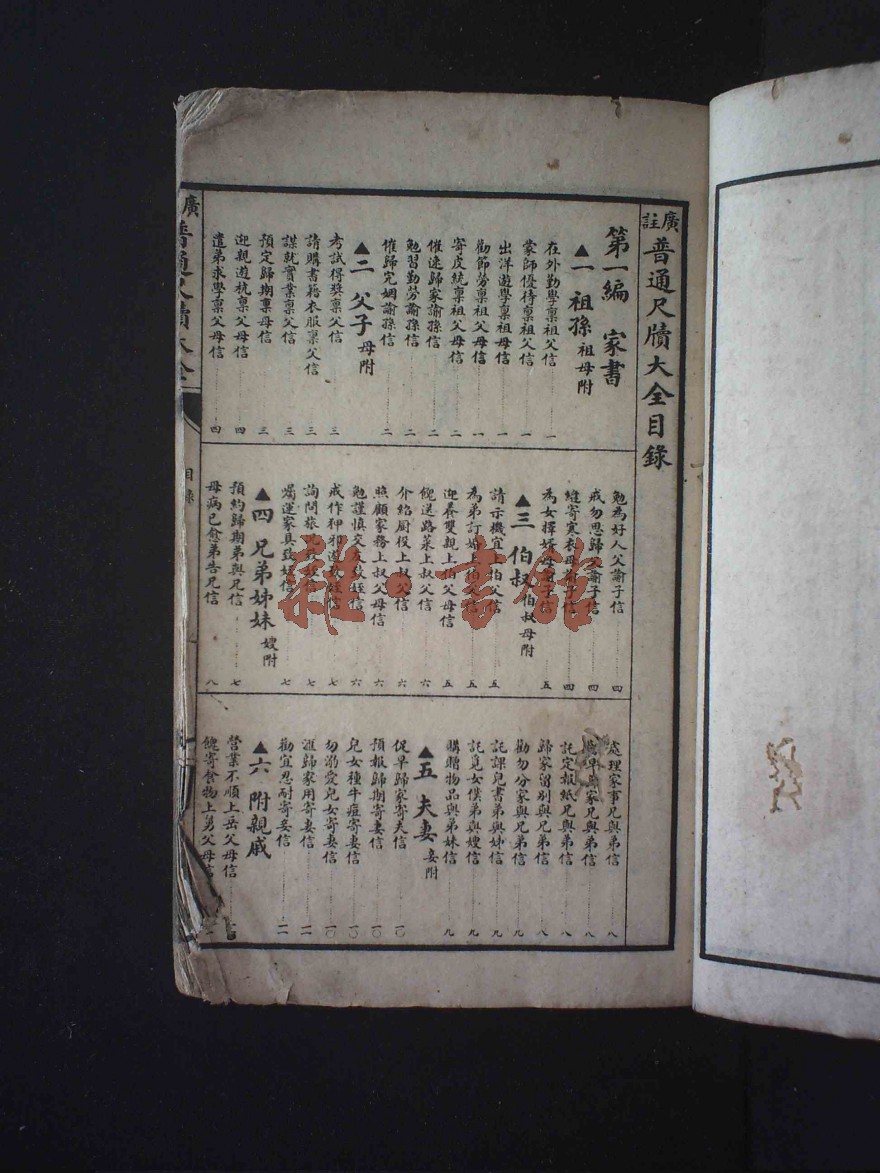 廣註普通尺牘大全目錄
第一編 家書
▲一 祖孫 祖母附
在外勤學稟祖父信 一
蒙師優待稟祖父信 一
出洋遊學稟祖母信 一
勸節勞稟祖父母信 一
寄皮統稟祖父母信 二
催速歸家諭孫信 二
勉習勤勞諭孫信 二
催歸完姻諭孫信 二
▲二 父子 母附
考試得獎稟父信 三
請購書籍衣服稟父信 三
謀就實業稟父信 三
預定歸期稟母信 三
迎親遊杭稟父母信 四
遣弟求學稟父母信 四
勉為好人父諭子信 四
戒勿思歸父諭子信 四
縫寄寒衣母諭子信 四
為女擇婿母諭子信 五
▲三 伯叔 伯叔母附
請示機宜上伯父信 五
為弟訂婚上伯父信 五
迎養雙親上伯父母信 五
餽送路菜上叔父信 六
介紹厨役上叔父信 六
照顧家務上叔父母信 六
勉謹慎交友致姪信 六
戒作狎邪遊致姪信 七
詢問旅況致姪信 七
囑運家具致姪信 七
▲四 兄弟姊妹 嫂附
預約歸期弟與兄信 七
母病已愈弟告兄信 八
處理家事兄與弟信 八
歸家兄與弟信 八
託定報紙兄與弟信 八
歸家留別與兄弟信 八
勸勿分家與兄弟信 九
託課兒書弟與姊信 九
託覓女僕弟與嫂信 九
購贈物品與弟妹信 九
▲五 夫妻 妾附
促早歸家寄夫信 一〇
預報歸期寄妻信 一〇
兒女種牛痘寄妻信 一〇
勿溺愛兒女寄妻信 一〇
滙歸家用寄妻信 一一
勸宜忍耐寄妾信 一一
▲六 附親戚
營業不順上岳父母信
餽寄食物上舅父母信
廣註普通尺牘大全
目錄
雜·書館